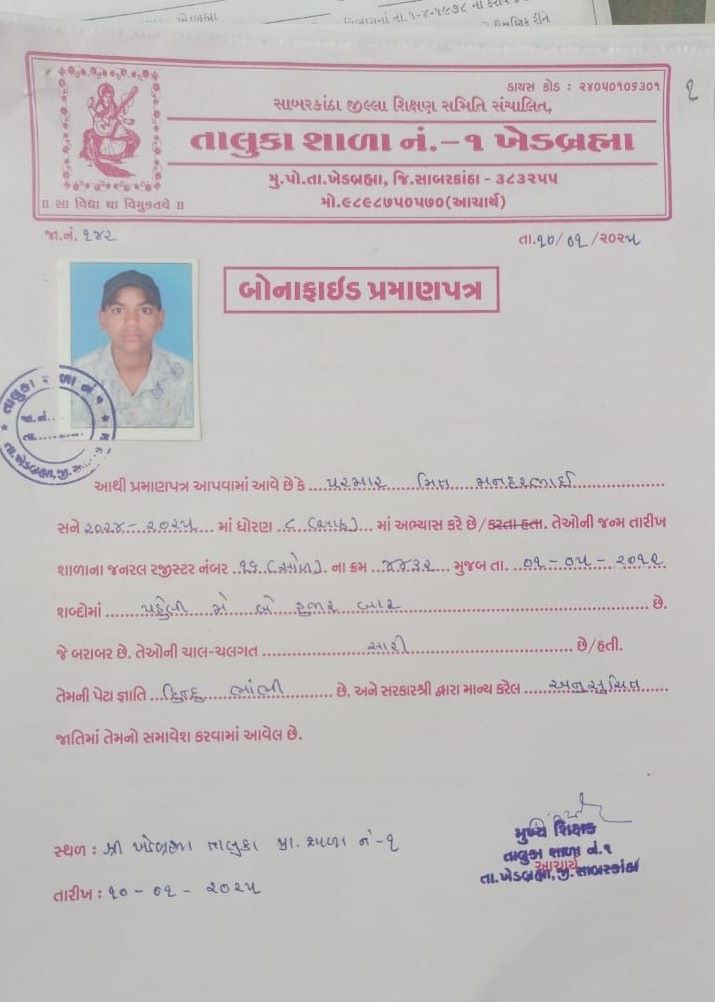 ડાયસ કોડ : ૨૪૦૫૦૧૦૬૩૦૧
૧
સાબરકાંઠા જીલ્લા શિક્ષણ સમિતિ સંચાલિત,
તાલુકા શાળા નં.– ૧ ખેડબ્રહ્મા
મુ.પો.તા.ખેડબ્રહ્મા, જિ.સાબરકાંઠા - ૩૮૩૨૫૫
મો.૯૮૯૮૭૫૦૫૭૦(આચાર્ય)
॥ સા વિદ્યા યા વિમુક્તયે ॥
જા.નં. ૧૪૨
તા.૧૦/૦૧/૨૦૨૫
બોનાફાઈડ પ્રમાણપત્ર
તાલુકા શાળા નં ૧
જા.નં.
તા.
તા.ખેડબ્રહ્મા,જી.
આથી પ્રમાણપત્ર આપવામાં આવે છે કે પરમાર મિત મનહરભાઈ
સને ૨૦૨૪-૨૦૨૫ માં ધોરણ ૮ (આઠ) માં અભ્યાસ કરે છે/કરતા હતા. તેઓની જન્મ તારીખ
શાળાના જનરલ રજીસ્ટર નંબર ૧૬ (સોળ) ના ક્રમ ૪૪૩૨ મુજબ તા. ૦૧-૦૫-૨૦૧૨
શબ્દોમાં પહેલી મે બે હજાર બાર છે.
જે બરાબર છે. તેઓની ચાલ-ચલગત સારી છે/હતી.
તેમની પેટા જ્ઞાતિ હિન્દુ ભાંભી છે. અને સરકારશ્રી દ્વારા માન્ય કરેલ અનુસુચિત
જાતિમાં તેમનો સમાવેશ કરવામાં આવેલ છે.
સ્થળ : શ્રી ખેડબ્રહ્મા તાલુકા પ્રા. શાળા નં-૧
તારીખ : ૧૦-૦૧-૨૦૨૫
મુખ્ય શિક્ષક
તાલુકા શાળા નં.૧
આચાર્ય
તા.ખેડબ્રહ્મા,જી.સાબરકાંઠા